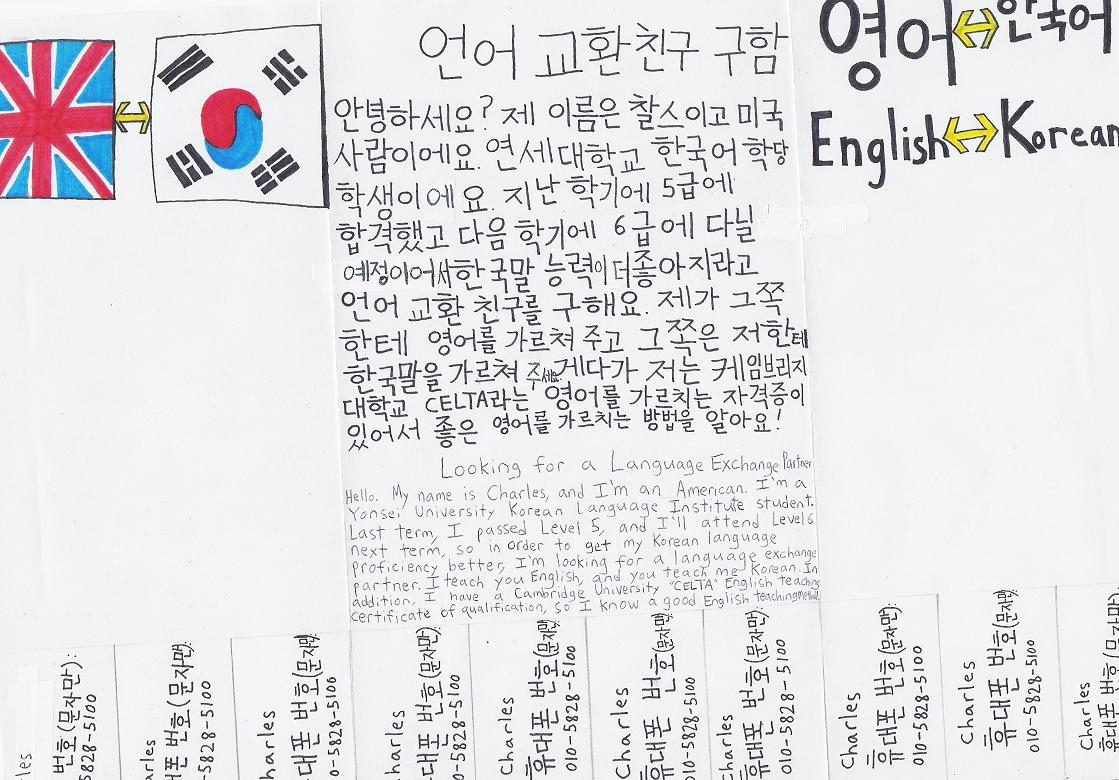 언어 교환 친구 구함
안녕하세요? 제 이름은 찰스이고 미국
사람이에요. 연세대학교 한국어 학당
학생이에요. 지난 학기에 5급에
합격했고 다음 학기에 6급에 다닐
예정이어서 한국말 능력이 더 좋아지라고
언어 교환 친구를 구해요. 제가 그쪽
한테 영어를 가르쳐 주고 그쪽은 저한테
한국말을 가르쳐 주세요. 게다가 저는 케임브리지
대학교 CELTA라는 영어를 가르치는 자격증이
있어서 좋은 영어를 가르치는 방법을 알아요!
Looking for a Language Exchange Partner
Hello. My name is Charles, and I'm an American. I'm a
Yonsei University Korean Language Institute student.
Last term, I passed Level 5, and I'll attend Level 6
next term, so in order to get my Korean language
proficiency better, I'm looking for a language exchange
partner. I teach you English, and you teach me Korean. In
addition, I have a Cambridge University "CELTA" English teaching
certificate of qualification, so I know a good English teaching
영어↔한국어
English↔Korean
les
번호(문자만):
5828-5100
arles
폰 번호(문자만)
010-5828-5100
Charles
대폰 번호(문자만)
0-5828-5100
Charles
대폰 번호(문자만)
0-5828-5100
Charles
휴대폰 번호(문자만):
010-5828-5100
Charles
휴대폰 번호(문자만)
010-5828-5100
Charles
휴대폰 번호(문자만):
010-5828-5100
Charles
휴대폰 번호(문자만):
010-5828-5100
Charles
휴대폰 번호(문자만):
010-5828-5100
Charles
휴대폰 번호(문자만)